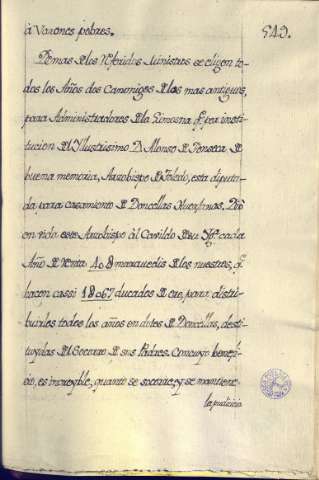 à Varones pobres.
542.
Demas de los referidos Ministros se eligen to-
dos los Años dos Canonigos de los mas antiguos,
para Administradores de la limosna qe. por insti-
tucion del Yllustrisimo D. Alonso de Fonseca de
buena memoria, Arzobispo de Toledo, esta diputa-
da para casamiento de Doncellas Huerfanas. Dió
en vida este Arzobispo àl Cavildo de su Ygª. cada
Año de renta 408 maravedis de los nuestros, qe.
hacen casi 18067 ducados de oro, para distri-
buirlos todos los años en dotes de Doncellas, desti-
tuydas del Socorro de sus Padres. Con cuyo benefi-
cio, es increyble, quanto se socorre, y se mantiene
la pudicia